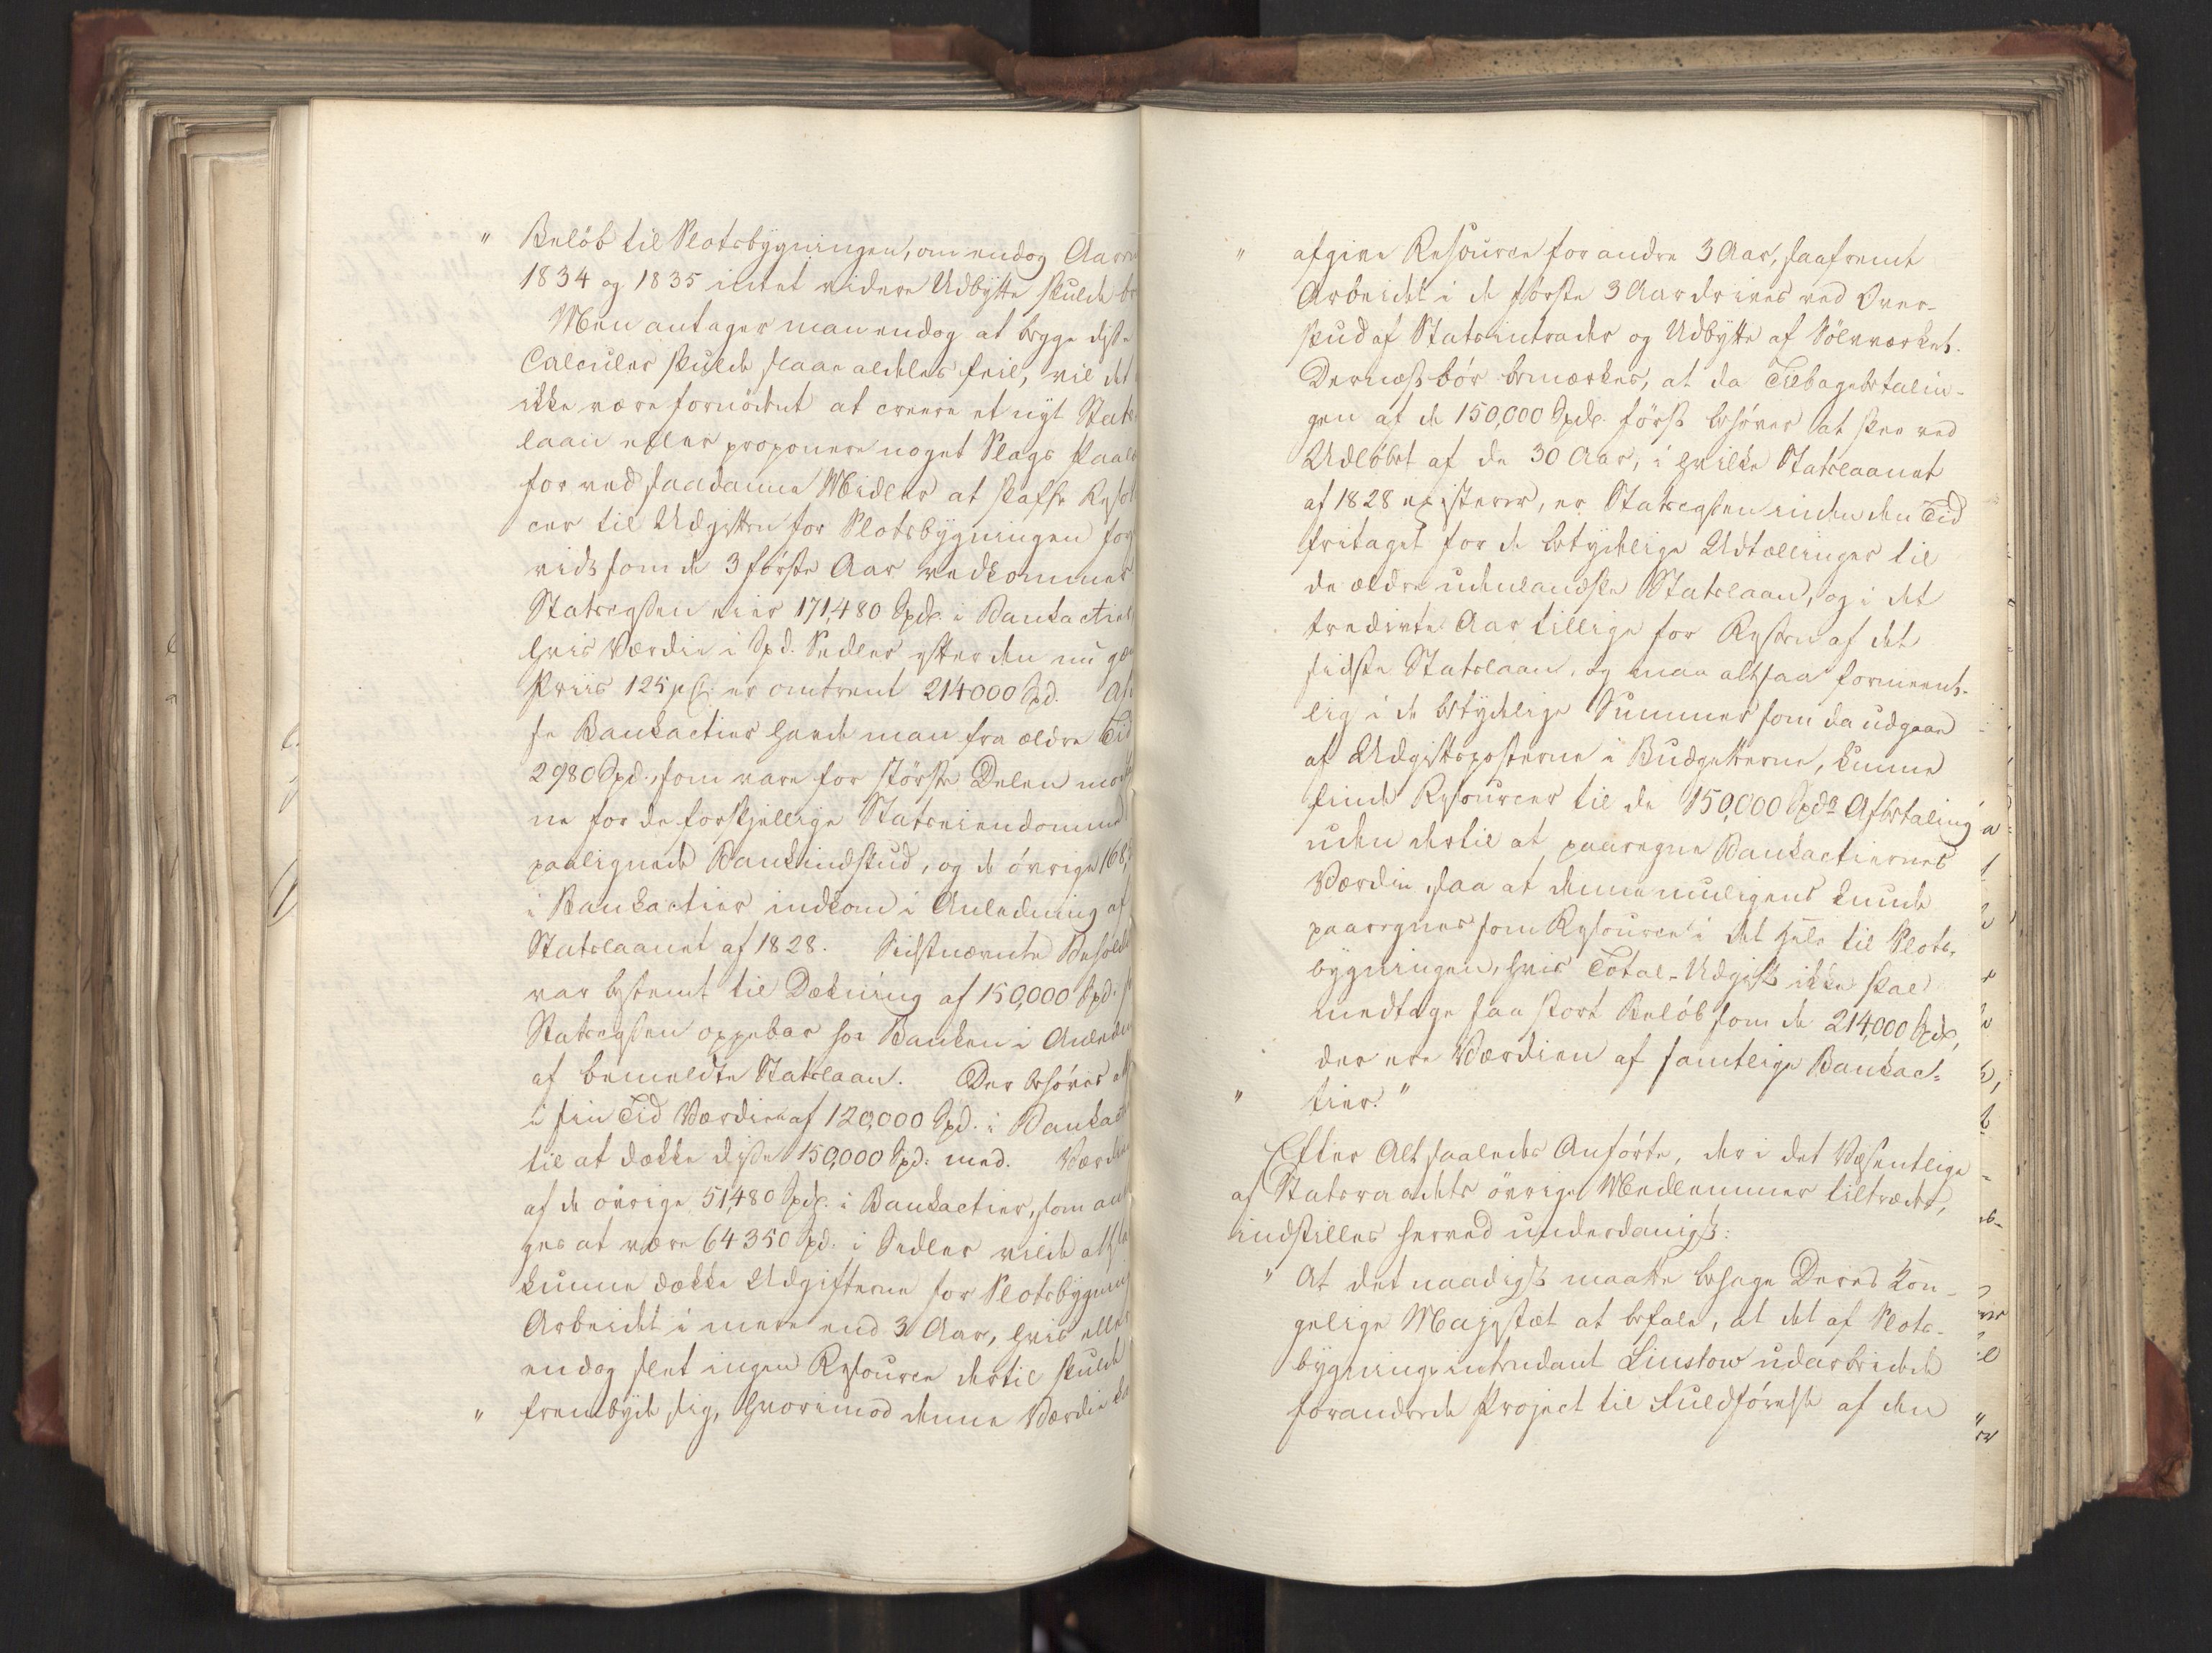 " Beløb til Slotsbygningen, om endog Aarene
1834 og 1835 intet videre Udbytte skulde
Men antager man endog at begge disse
Calculer skulde slaae aldeles feil, vil det
ikke være fornødent at creere et nyt Stats-
laan eller proponere noget Slags
for ved saadanne Midler at skaffe
cer til Udgiften for Slotsbygningen for
vidt som de 3 første Aar vedkommer
Statscassen eier 171,480 Spdr. i Bankactier
hvis Værdie i Spd. Sedler efter den nu
Priis 125 pCt. er omtrent 214000 Spd. Af
se Bankactier havde man fra ældre Tid
2980 Spd., som vare for største Delen
ne for de forskjellige Statseiendomme
paalignede Bankindskud, og de øvrige 168,
i Bankactier indkom i Anledning af
Statslaanet af 1828. Sidstnævnte
var bestemt til Dækning af 150,000 Spd.
Statscassen oppebar hos Banken i
af bemeldte Statslaan. Der behøves
i sin Tid Værdien af 120,000 Spd. i
til at dække disse 150,000 Spd. med. Værdien
af de øvrige 51,480 Spdr. i Bankactier, som
ges at være 64350 Spd. i Sedler vilde
kunne dække Udgifterne for
Arbeidet i mere end 3 Aar, hvis ellers
endog slet ingen Resource dertil skulde
" frembyde sig, hvorimod denne Værdie
" afgive Resource for andre 3 Aar, saafremt
Arbeidet i de første 3 Aar drives ved Over-
skud af Statsintrader og Udbytte af Sølvværket.
Dernæst bør bemærkes, at da Tilbagebetalin-
gen af de 150,000 Spdr. først behøver at skee ved
Udløbet af de 30 Aar, i hvilke Statslaanet
af 1828 existerer, er Statscassen inden den Tid
fritaget for de betydelige Udtællinger til
de ældre udenlandske Statslaan, og i det
tredivte Aar tillige for Resten af det
sidste Statslaan, og maa altsaa formeent-
lig i de betydelige Summer som da udgaae
af Udgiftsposterne i Budgetterne, kunne
finde Resourcer til de 150,000 Spdrs Afbetaling
uden dertil at paaregne Bankactiernes
Værdie, saa at denne muligens kunde
paaregnes som Resource i det hele til Slots-
bygningen, hvis Total-Udgift ikke skal
medtage saa stort Beløb som de 214,000 Spdr,
der ere Værdien af samtlige Bankac-
" tier."
Efter Alt saaledes Anførte, der i det Væsentlige
af Statsraadets øvrige Medlemmer tiltrædes,
indstilles herved underdanigst:
" At det naadigst maatte behage Deres Kon-
gelige Majestæt at befale, at det af Slots-
bygningsintendant Linstow udarbeidede
forandrede Project til Fuldførelse af den